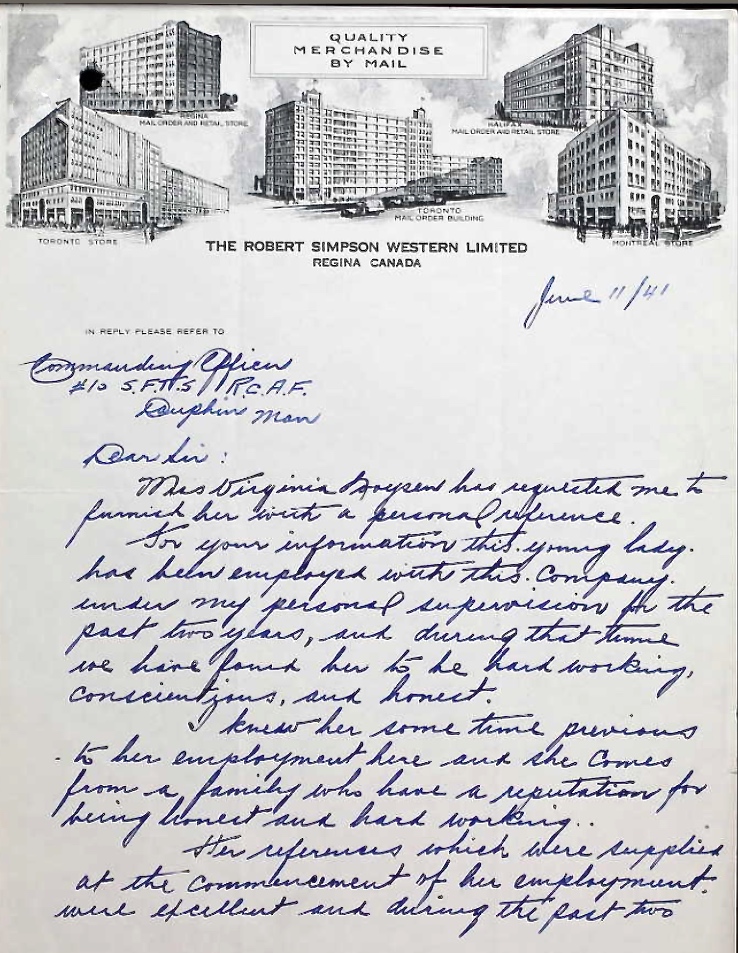 QUALITY
MERCHANDISE
BY MAIL
REGINA
MAIL ORDER AND RETAIL STORE
HALIFAX
MAIL ORDER AND RETAIL STORE
TORONTO
MAIL ORDER BUILDING
TORONTO STORE
MONTREAL STORE
THE ROBERT SIMPSON WESTERN LIMITED
REGINA CANADA
June 11/41
IN REPLY PLEASE REFER TO
Commanding Officer
#10 S.F.T.S R.C.A.F.
Dauphin Man
Dear Sir:
Miss Virginia has requested me to
furnish her with a personal reference.
For your information this young lady.
has been employed with this. Company.
under my personal supervision for the
past two years, and during that time
we have found her to be hard working,
conscientious, and honest.
I knew her some time previous
to her employment here and she comes
from a family who have a reputation for
being honest and hard working..
Her references which were supplied
at the commencement of her employment.
were excellent and during the past two